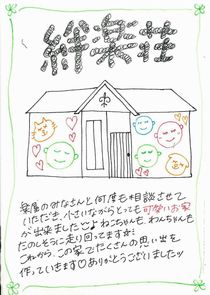 絆楽荘
楽屋のみなさんと何度も相談させて
いただき、小さいながらとっても可愛いお家
が出来ました♡ねこちゃんも、わんちゃんも
たのしそうに走り回ってます!!
これから、この家でたくさんの思い出を
作っていきます♡ありがとうございました!!